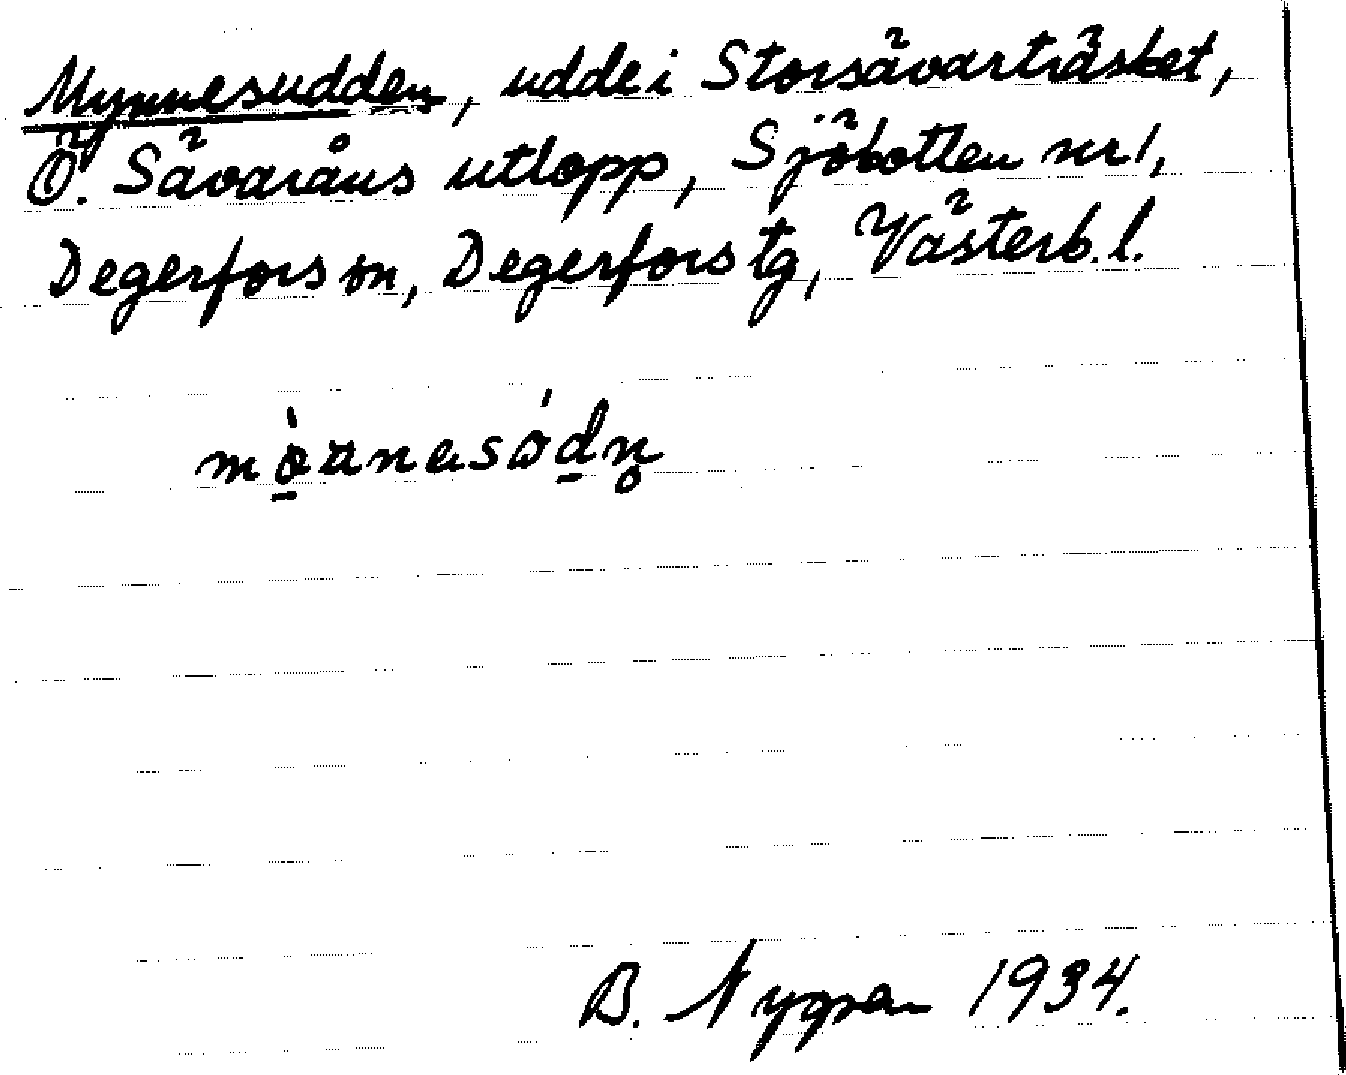 Mynnesudden, udde i Storsävarträsket,
Ö. Sävaråns utlopp, Sjöbotten nr 1,
Degerfors sn, Degerfors tg, Västerb. l.
B. Nygren 1934.